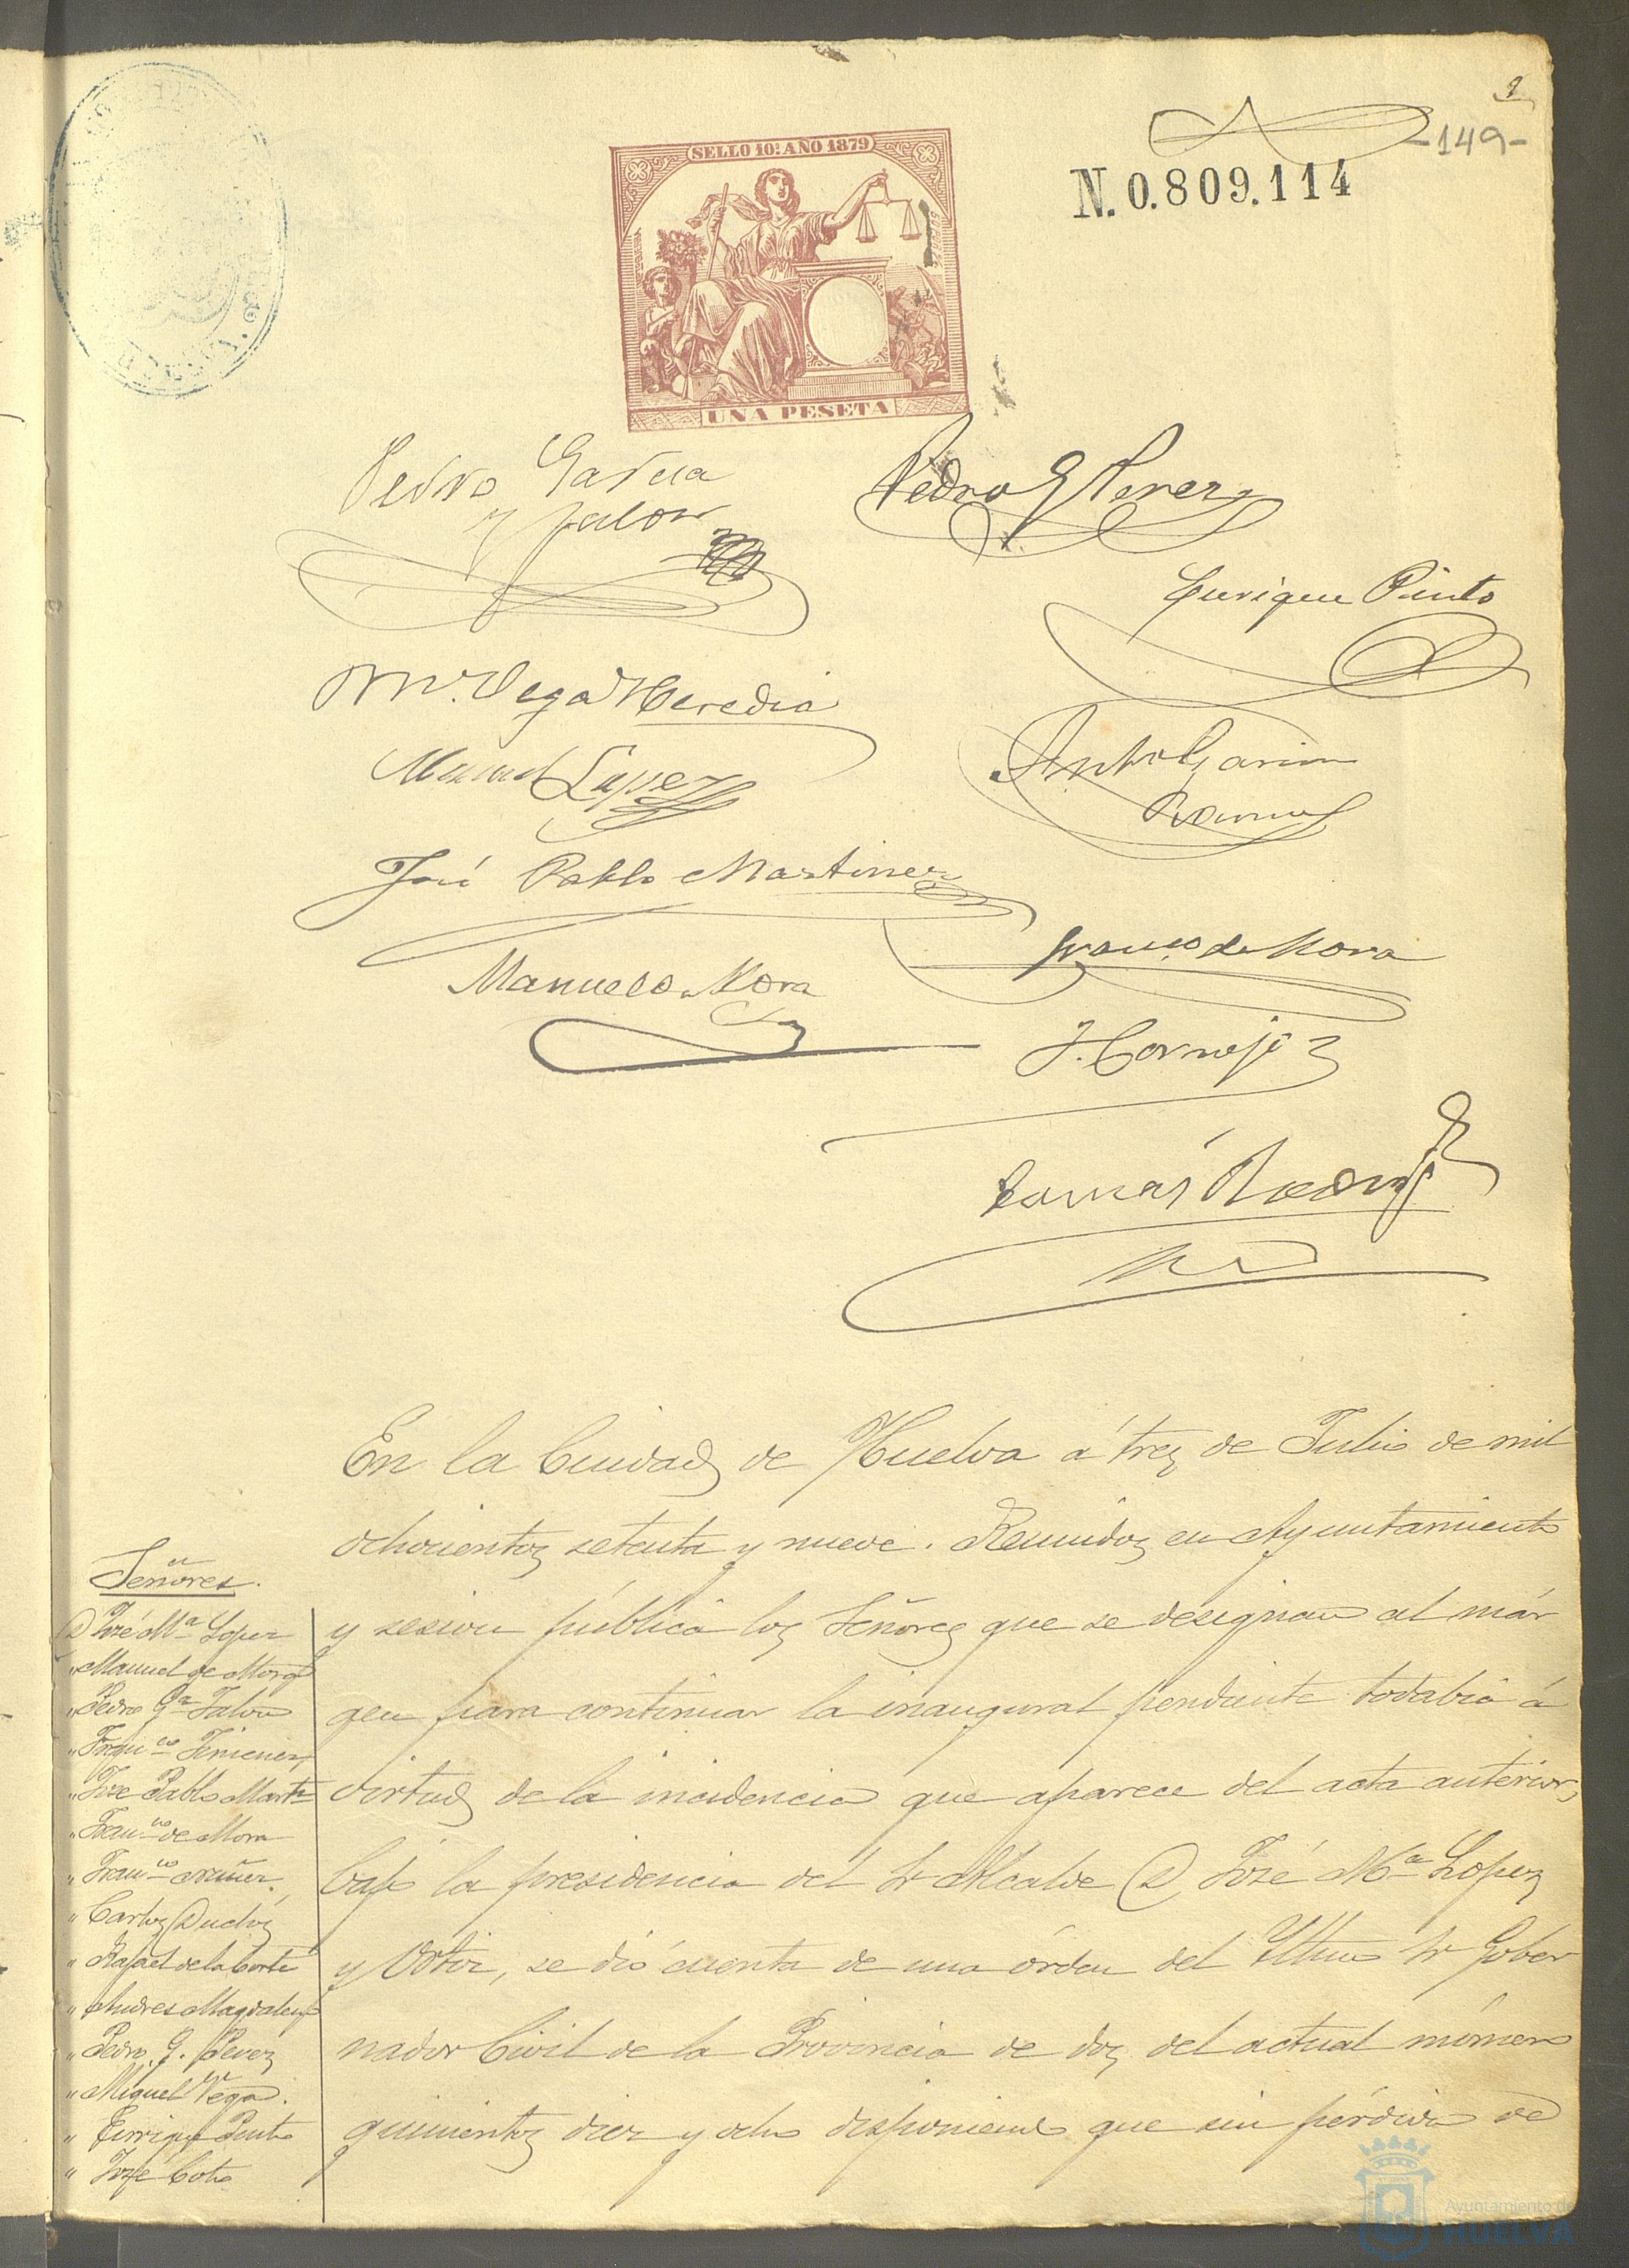 9
-149-
SELLO 10º AÑO 1879
N. 0.809.114
UNA PESETA
Pedro Garcia
y Jalon
Pedro G Perez
Enrique Pinto
M. Vega Heredia
Manuel Lopez
Antº Garcia
Ramos
José Pablo Martinez
Franco de Mora
Manuel de Mora
J. Cornejo
Tomás
En la Ciudad de Huelva á tres de Julio de mil
ochocientos setenta y nueve. Reunidos en Ayuntamiento
y sesion pública los Señores que se designan al már
gen para continuar la inaugural pendiente todabia á
virtud de la incidencia que aparece del acta anterior,
bajo la presidencia del Sr Alcalde D José Mª Lopez
y Ortiz, se dió cuenta de una órden del Iltmo Sr Gober
nador Civil de la Provincia de dos del actual número
quinientos diez y ocho disponiendo que sin pérdida de
Señores.
D José Mª Lopez
" Manuel de Mora
" Pedro Gª Jalon
" Franco Jimenez
" José Pablo Martz
" Franco de Mora
" Franco Nuñez
" Carlos
" Rafael de la Corte
" Andres Magdalena
" Pedro G. Perez
" Miguel Vega.
" Enrique Pinto
" José Coto
Ayuntamiento de
HUELVA